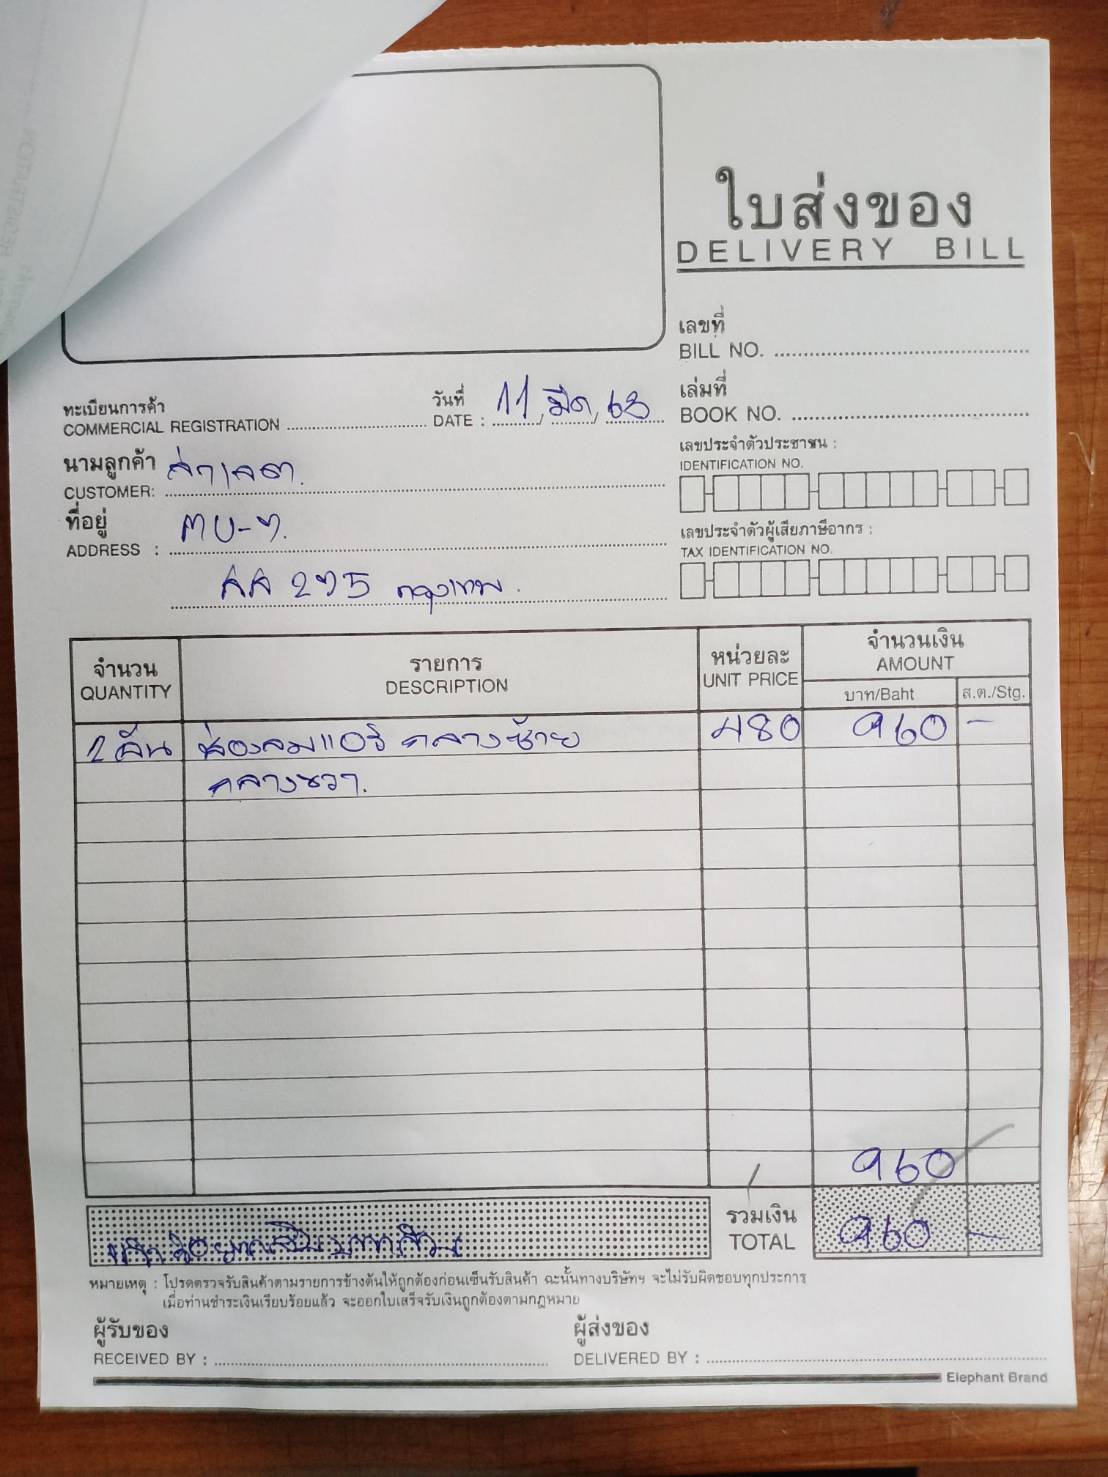 ใบส่งของ
DELIVERY BILL
เลขที่
BILL NO.
ทะเบียนการค้า
COMMERCIAL REGISTRATION
วันที่
DATE : 11 / มีค / 68
เล่มที่
BOOK NO.
นามลูกค้า
CUSTOMER:
เลขประจำตัวประชาชน :
IDENTIFICATION NO.
ที่อยู่
ADDRESS :
เลขประจำตัวผู้เสียภาษีอากร :
TAX IDENTIFICATION NO.
295 กรุงเทพ.
จำนวน
QUANTITY
รายการ
DESCRIPTION
หน่วยละ
UNIT PRICE
จำนวนเงิน
AMOUNT
บาท/Baht
ส.ต./Stg.
2 อัน ช่องลมแอร์ กลางซ้าย 480 960 -
กลางขวา.
960
รวมเงิน
TOTAL
960 -
เก้าร้อยหกสิบบาทถ้วน
หมายเหตุ : โปรดตรวจรับสินค้าตามรายการข้างต้นให้ถูกต้องก่อนเซ็นรับสินค้า ฉะนั้นทางบริษัทฯ จะไม่รับผิดชอบทุกประการ
เมื่อท่านชำระเงินเรียบร้อยแล้ว จะออกใบเสร็จรับเงินถูกต้องตามกฎหมาย
ผู้รับของ
RECEIVED BY :
ผู้ส่งของ
DELIVERED BY :
Elephant Brand